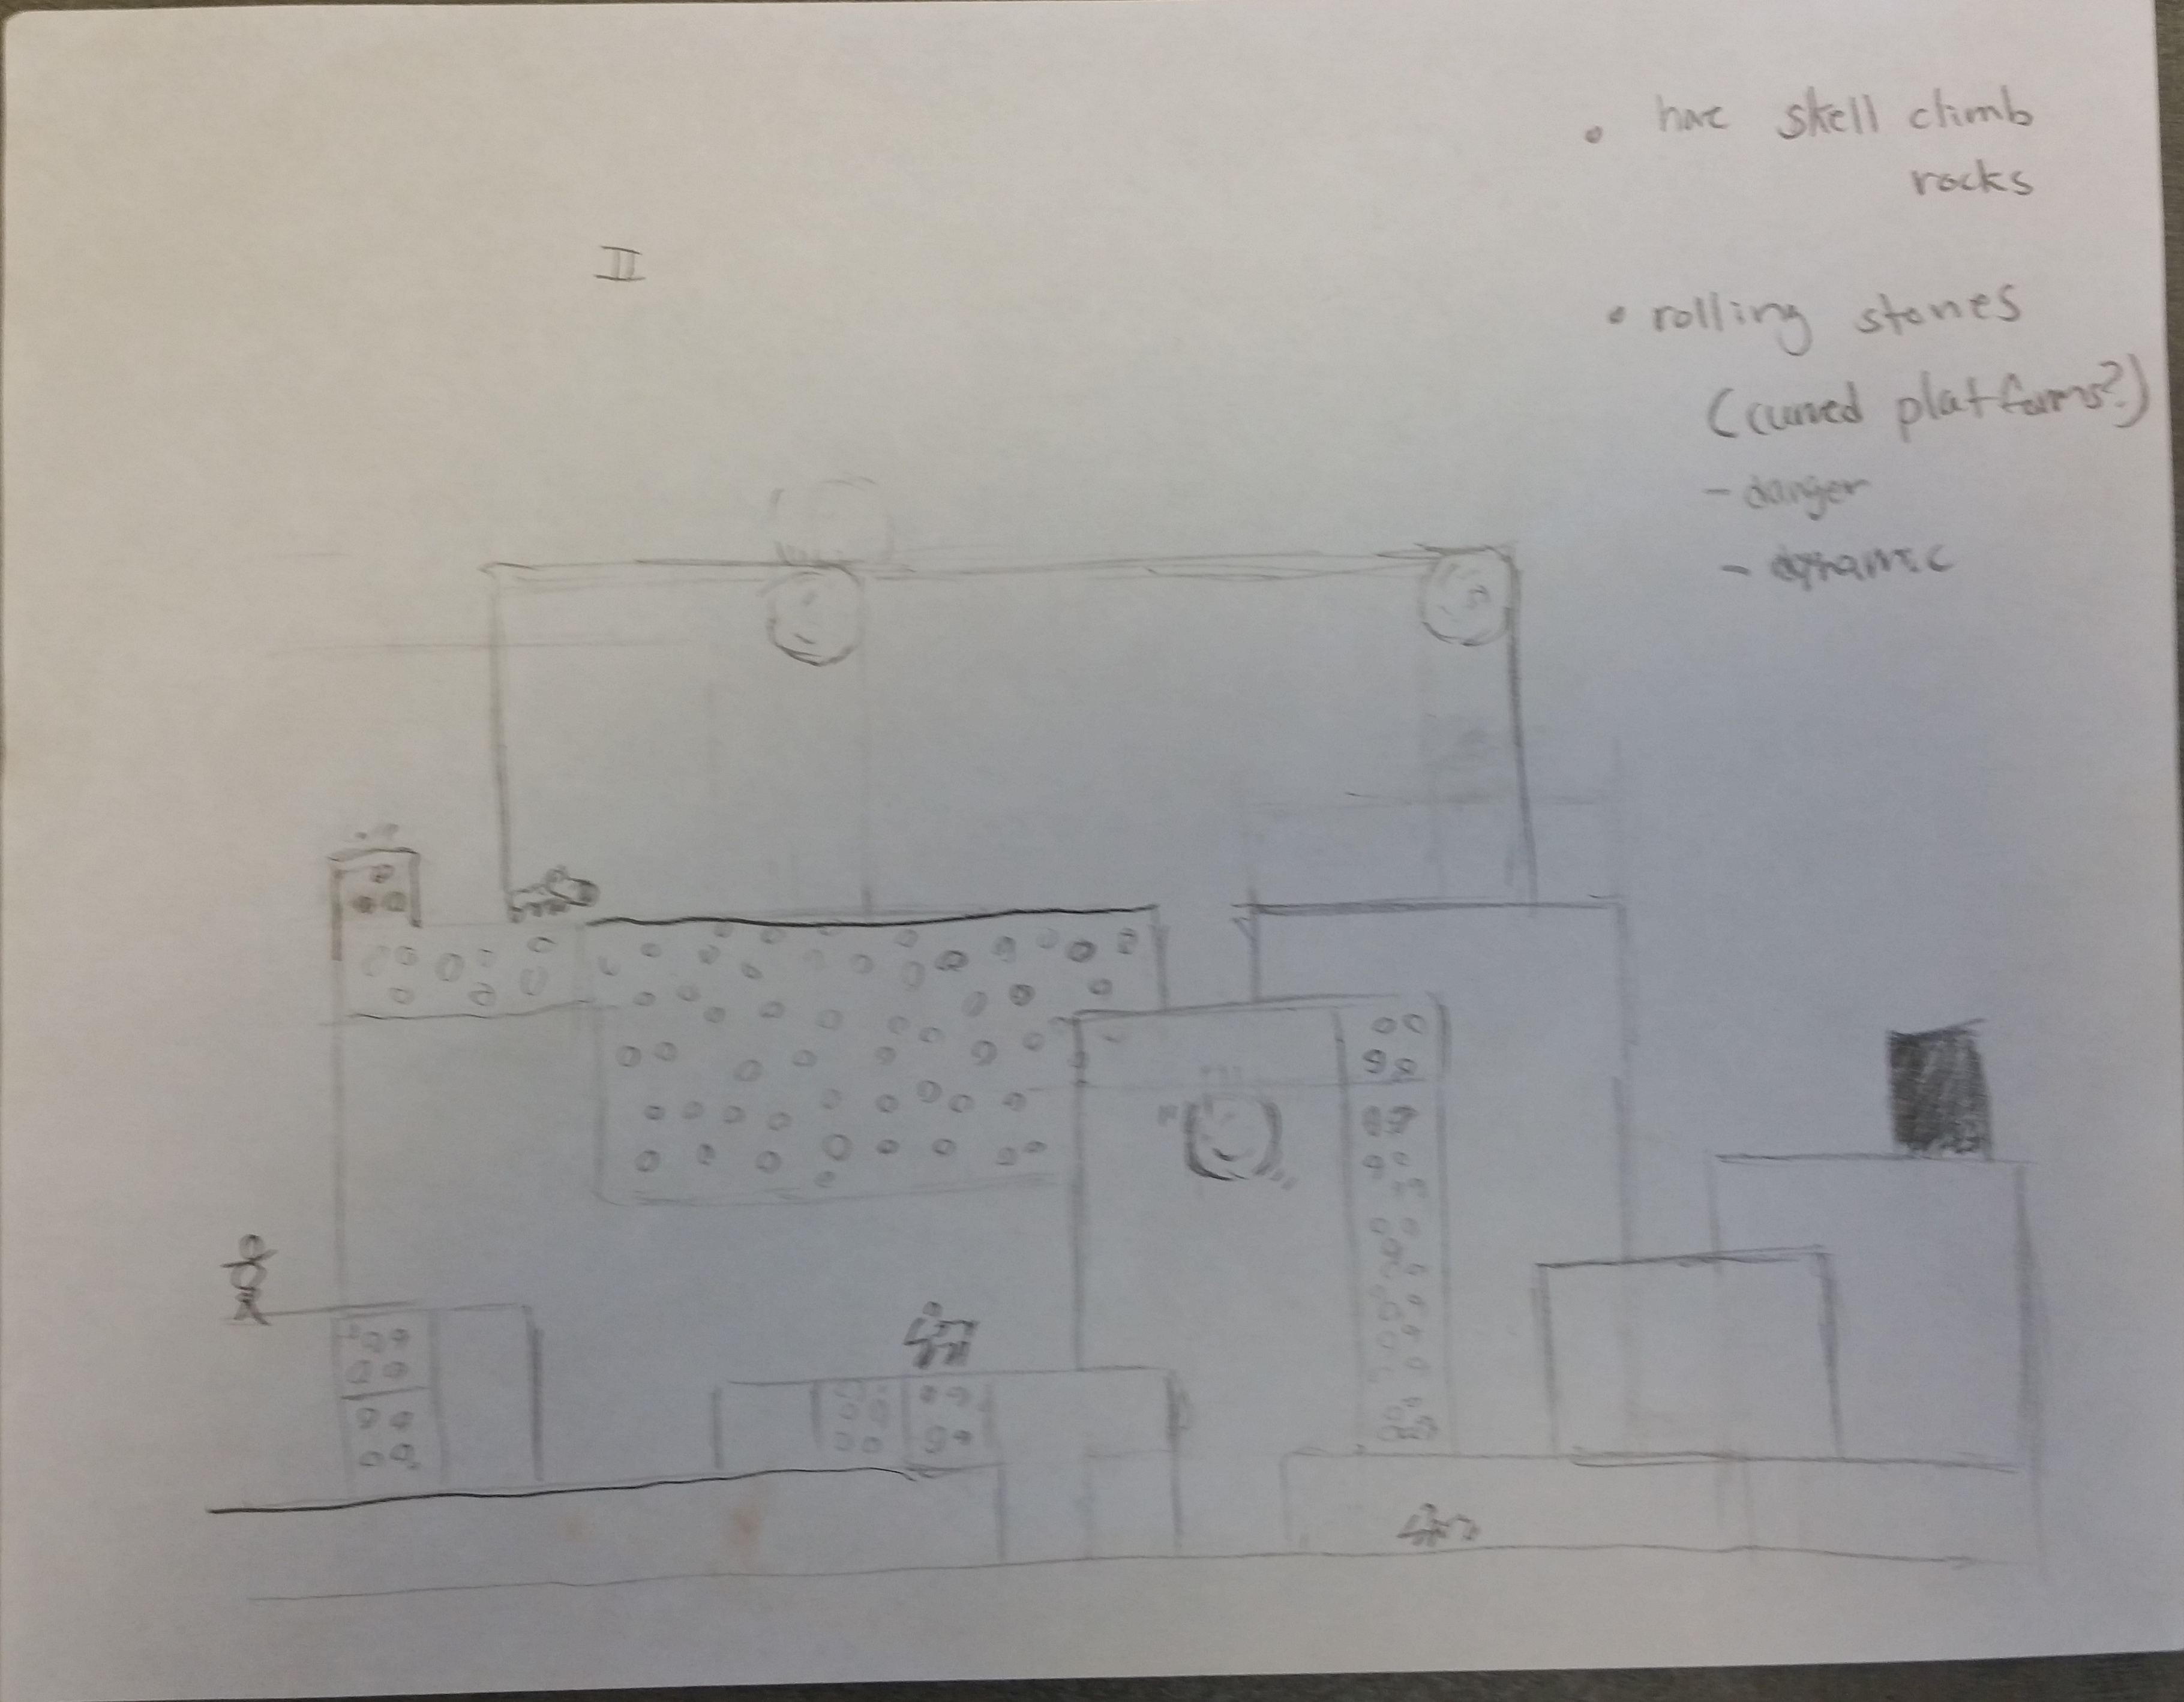 II
• have skell climb
rocks
• rolling stones
(curved platforms?)
- danger
- dynamic